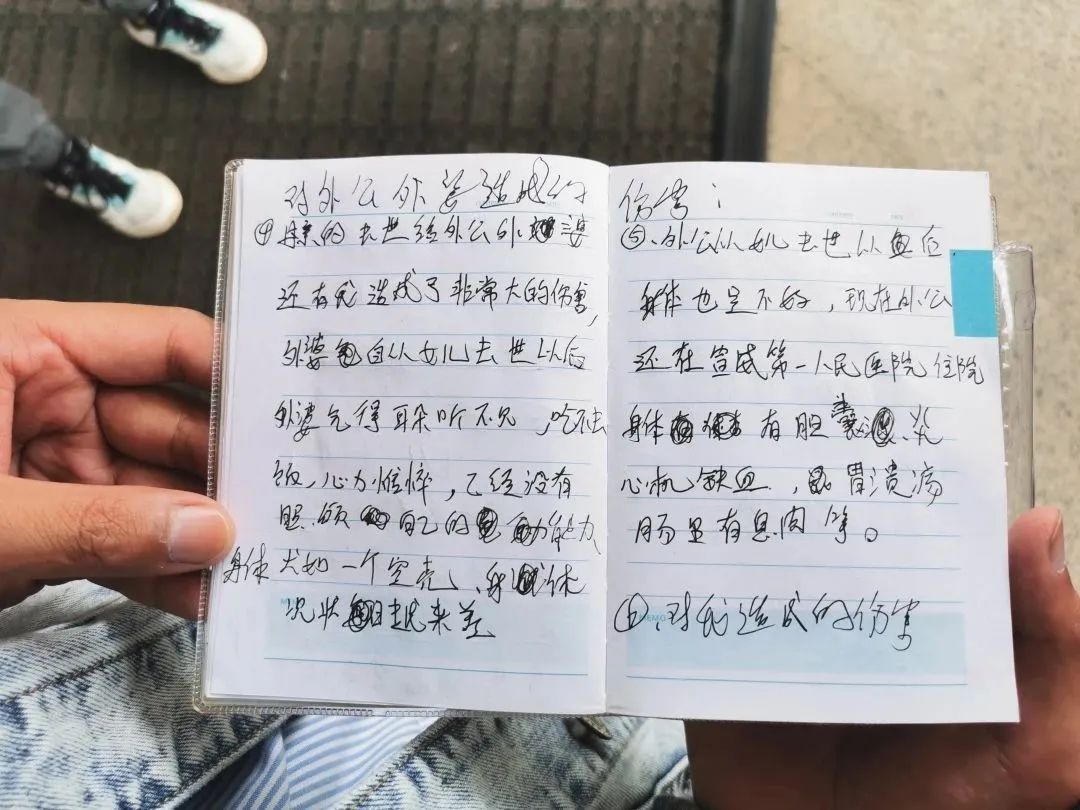 对外公外婆造成的
④ 母亲的去世给外公外婆
还有我造成了非常大的伤害,
外婆自从女儿去世以后
外婆气得耳朵听不见,吃不去
饭,心力憔悴,已经没有
照顾自己的能力
身体犬如一个空壳、身体
况状越来差
伤害:
⑤、外公从女儿去世以后
身体也是不好,现在外公
还在宣威第一人民医院住院
身体有胆囊炎
心机缺血,胃溃疡
肠里有息肉等。
、对我造成的伤害